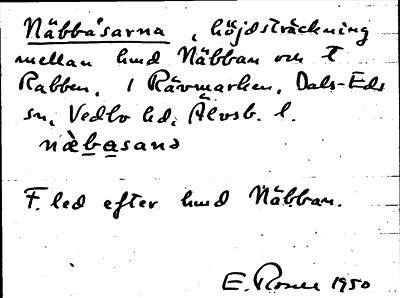 Näbbåsarna, höjdsträckning
mellan hmd Näbban och t
Rabben, i Rävmarken, Dals-Eds
sn, Vedbo hd, Älvsb. l.
nàbasanə
F. led efter hmd Näbban.
E. Rosell 1950